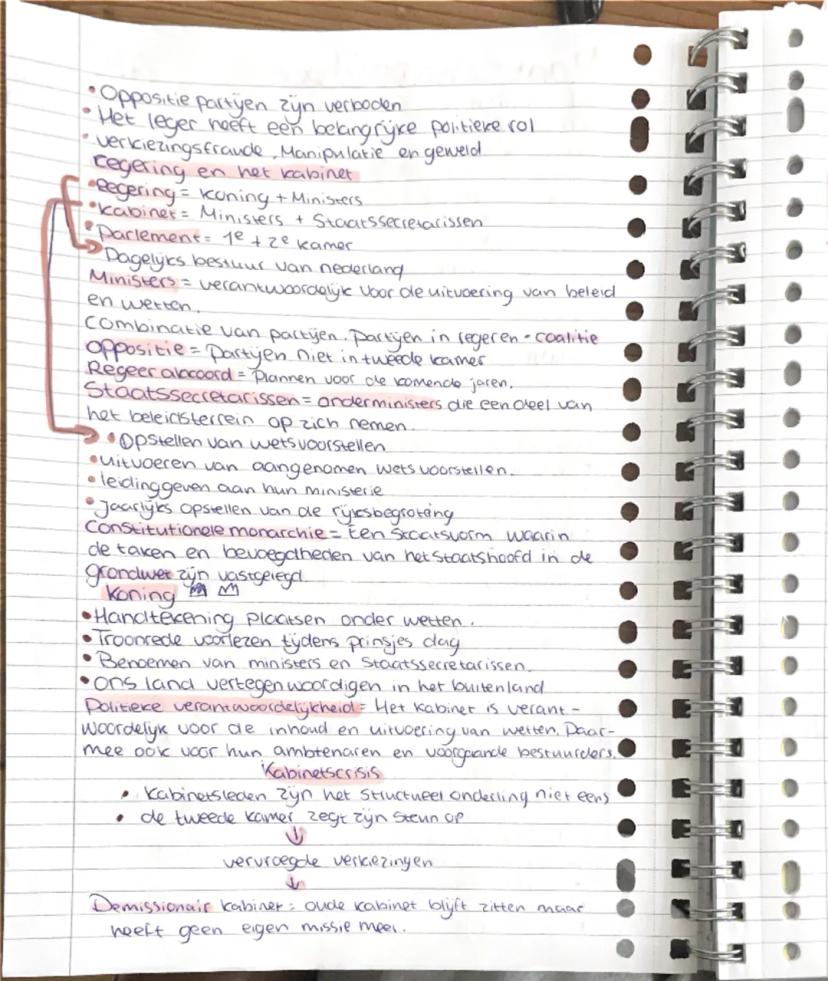 • Oppositie partijen zijn verboden
• Het leger heeft een belangrijke politieke rol
• verkiezingsfraude, Manipulatie en geweld
regering en het kabinet
• Regering = koning + Ministers
• Kabinet = Ministers + Staatssecretarissen
• Parlement = 1e + 2e kamer
Dagelijks bestuur van nederland
Ministers = verantwoordelijk voor de uitvoering van beleid
en wetten.
Combinatie van partijen. Partijen in regeren - coalitie
oppositie = Partijen niet in tweede kamer
Regeer akkoord = Plannen voor de komende jaren.
Staatssecretarissen = onderministers die een deel van
het beleidsterrein op zich nemen.
• Opstellen van wetsvoorstellen
• uitvoeren van aangenomen wetsvoorstellen.
• leidinggeven aan hun ministerie
• Jaarlijks opstellen van de rijksbegroting
Constitutionele monarchie = Een staatsvorm waarin
de taken en bevoegdheden van het staatshoofd in de
grondwet zijn vastgelegd.
Koning
• Handtekening plaatsen onder wetten.
• Troonrede voorlezen tijdens prinsjes dag
• Benoemen van ministers en Staatssecretarissen.
• ons land vertegenwoordigen in het buitenland
Politieke verantwoordelijkheid = Het kabinet is verant-
woordelijk voor de inhoud en uitvoering van wetten. Daar-
mee ook voor hun ambtenaren en voorgaande bestuurders.
Kabinetscrisis
• Kabinetsleden zijn het structureel onderling niet eens
• de tweede kamer zegt zijn steun op
↓
vervroegde verkiezingen
↓
Demissionair kabinet = oude kabinet blijft zitten maar
heeft geen eigen missie meer.